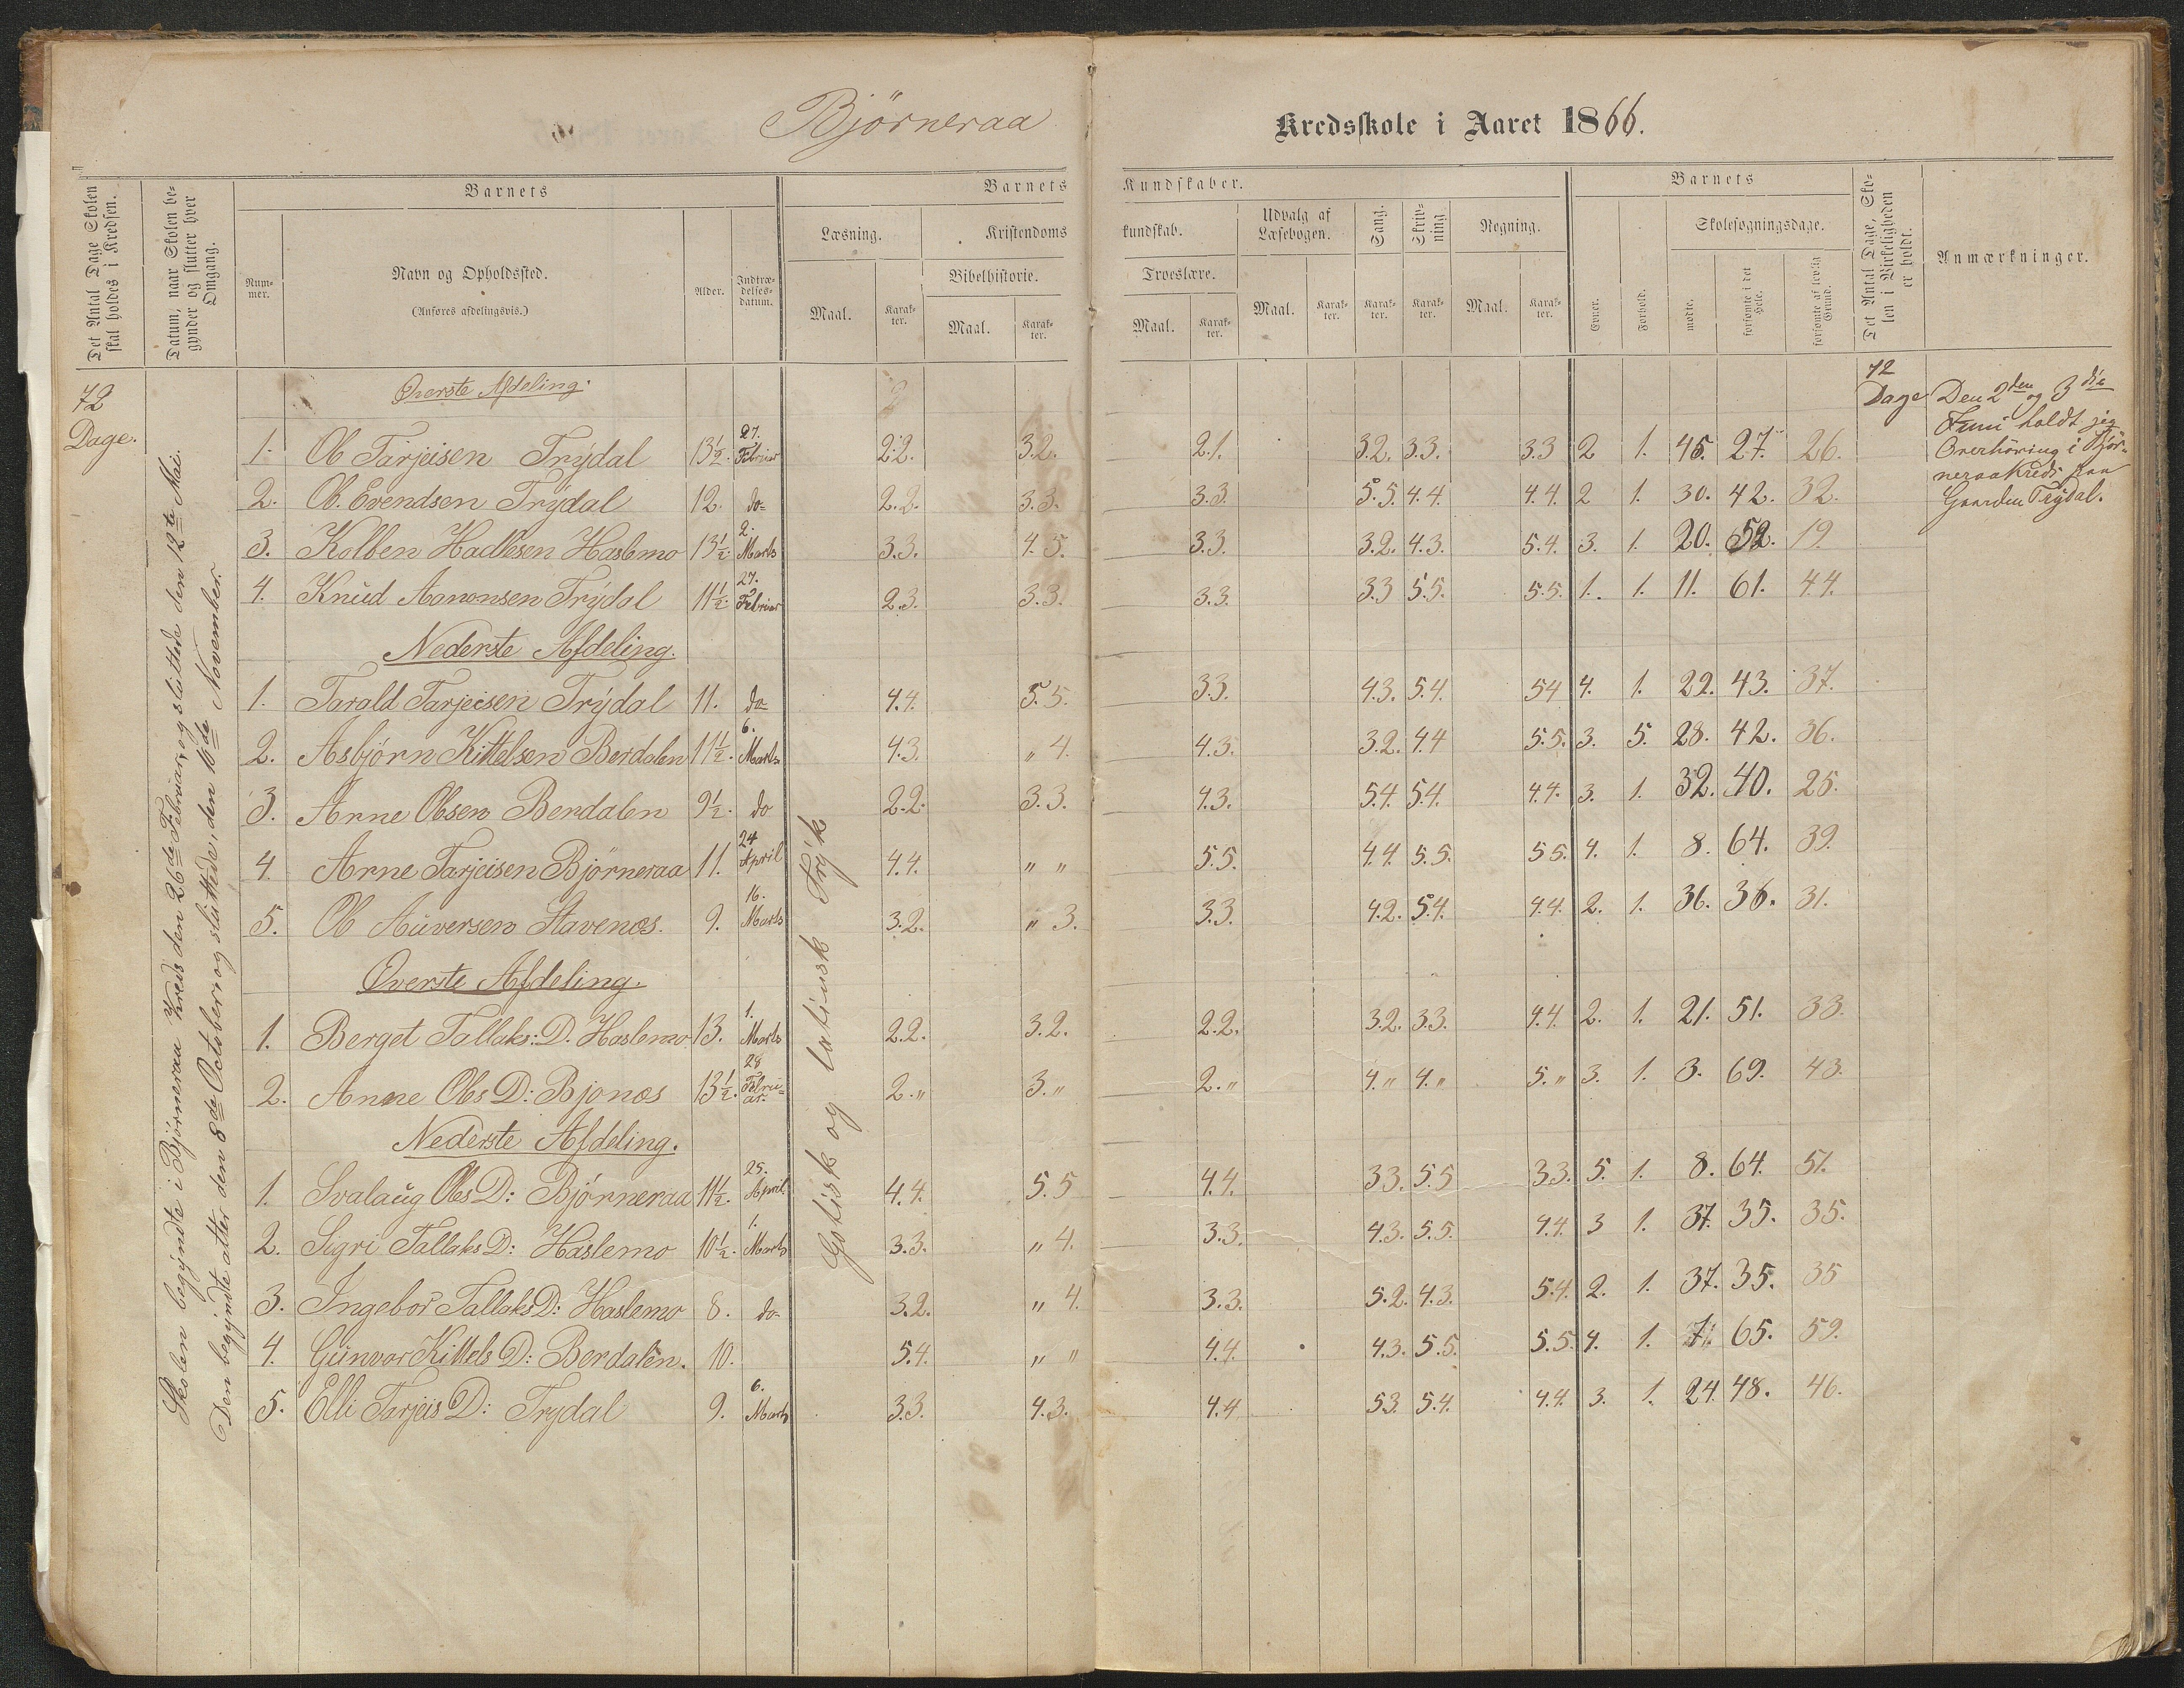 Björneraa Kredsskole i Aaret 1866.
Det Antal Dage Skolen skal holdes i Kredsen.
Datum, naar Skolen begynder og slutter hver Omgang.
Barnets
Nummer.
Navn og Opholdssted.
(Anføres afdelingsvis.)
Alder.
Indtrædelsesdatum.
Barnets Kundskaber.
Læsning.
Maal. Karakter.
Kristendomskundskab.
Bibelhistorie.
Maal. Karakter.
Troeslære.
Maal. Karakter.
Udvalg af Læsebogen.
Maal. Karakter.
Sang.
Karakter.
Skrivning
Karakter.
Regning.
Maal. Karakter.
Barnets
Evner.
Forhold.
Skolesøgningsdage.
mødte.
forsømte i det Hele.
forsømte af lovlig Grund.
Det Antal Dage, Skolen i Virkeligheden er holdt.
Anmærkninger.
72
Dage.
Skolen begyndte i Björneraa Kreds den 26de Februar, og sluttede den 12te Mai.
Den begyndte atter den 8de October og sluttede, den 10de November.
Gotisk og latinsk Tryk
72
Dage
Den 2den og 3die
Juni holdt jeg
Overhöring i Björ-
neraa Kreds paa
Gaarden Trydal.
Øverste Afdeling.
1. Ol Tarjeisen Trydal 13½. 27. Februar 2.2. 3.2. 2.1. 3.2. 3.3. 3.3 2 1. 45. 27. 26.
2. Ol. Evendsen Trydal 12. do- 2.2. 3.3. 3.3. 5.5. 4.4. 4.4. 2 1. 30. 42. 32.
3. Kolben Hadlesen Haslemo 13½. 2. Marts 3.3. 4.5. 3.3. 3.2. 4.3. 5.4. 3. 1. 20. 52. 19.
4. Knud Aanonsen Trydal 11½. 27. Februar 2.3. 3.3. 3.3. 3.3 5.5. 5.5. 1. 1. 11. 61. 44.
Nederste Afdeling.
1. Tarald Tarjeisen Trydal 11. do- 4.4. 5.5. 3.3. 4.3. 5.4. 5.4 4. 1. 29. 43. 37.
2. Asbjörn Kittelsen Berdalen 11½. 6. Marts 4.3. " 4. 4.3. 3.2. 4.4 5.5. 3. 5. 28. 42. 36.
3. Arne Olsen Berdalen 9½. do 2.2. 3.3. 4.3. 5.4. 5.4. 4.4. 3. 1. 32. 40. 25.
4. Arne Tarjeisen Björneraa 11. 24 April 4.4. " " 5.5. 4.4. 5.5. 5.5. 4. 1. 8. 64. 39.
5. Ol Auversen Stavenes. 9. 16. Marts 3.2. " 3. 3.3. 4.2. 5.4. 4.4. 2. 1. 36. 36. 31.
Øverste Afdeling.
1. Berget Tallaks: D. Haslemo 13. 1. Marts 2.2. 3.2. 2.2. 3.2. 3.3. 4.4. 2. 1. 21. 51. 33.
2. Anne Ols D: Bjonæs 13½. 28 Februar. 2." 3." 2." 4." 4." 5." 3. 1. 3. 69. 43.
Nederste Afdeling.
1. Svalaug Ols D: Björneraa 11½. 25. April 4.4. 5.5 4.4. 3.3. 5.5 3.3. 5. 1. 8. 64. 51.
2. Sigri Tallaks D: Haslemo 10½. 1. Marts 3.3. " 4. 3.3. 4.3. 5.5. 4.4. 3 1. 37. 35. 35.
3. Ingebor Tallaks D: Haslemo 8. do- 3.2. " 4. 3.3. 5.2. 4.3. 5.4. 2. 1. 37. 35. 35
4. Gunvor Kittels D: Berdalen. 10. 5.4. " " 4.4. 4.3. 5.5. 5.5. 4. 1. 65. 59.
5. Elli Tarjeis D: Trydal 9. 6. Marts 3.3. 4.3. 4.4 5.3. 5.4. 4.4. 3. 1. 24. 48. 46.